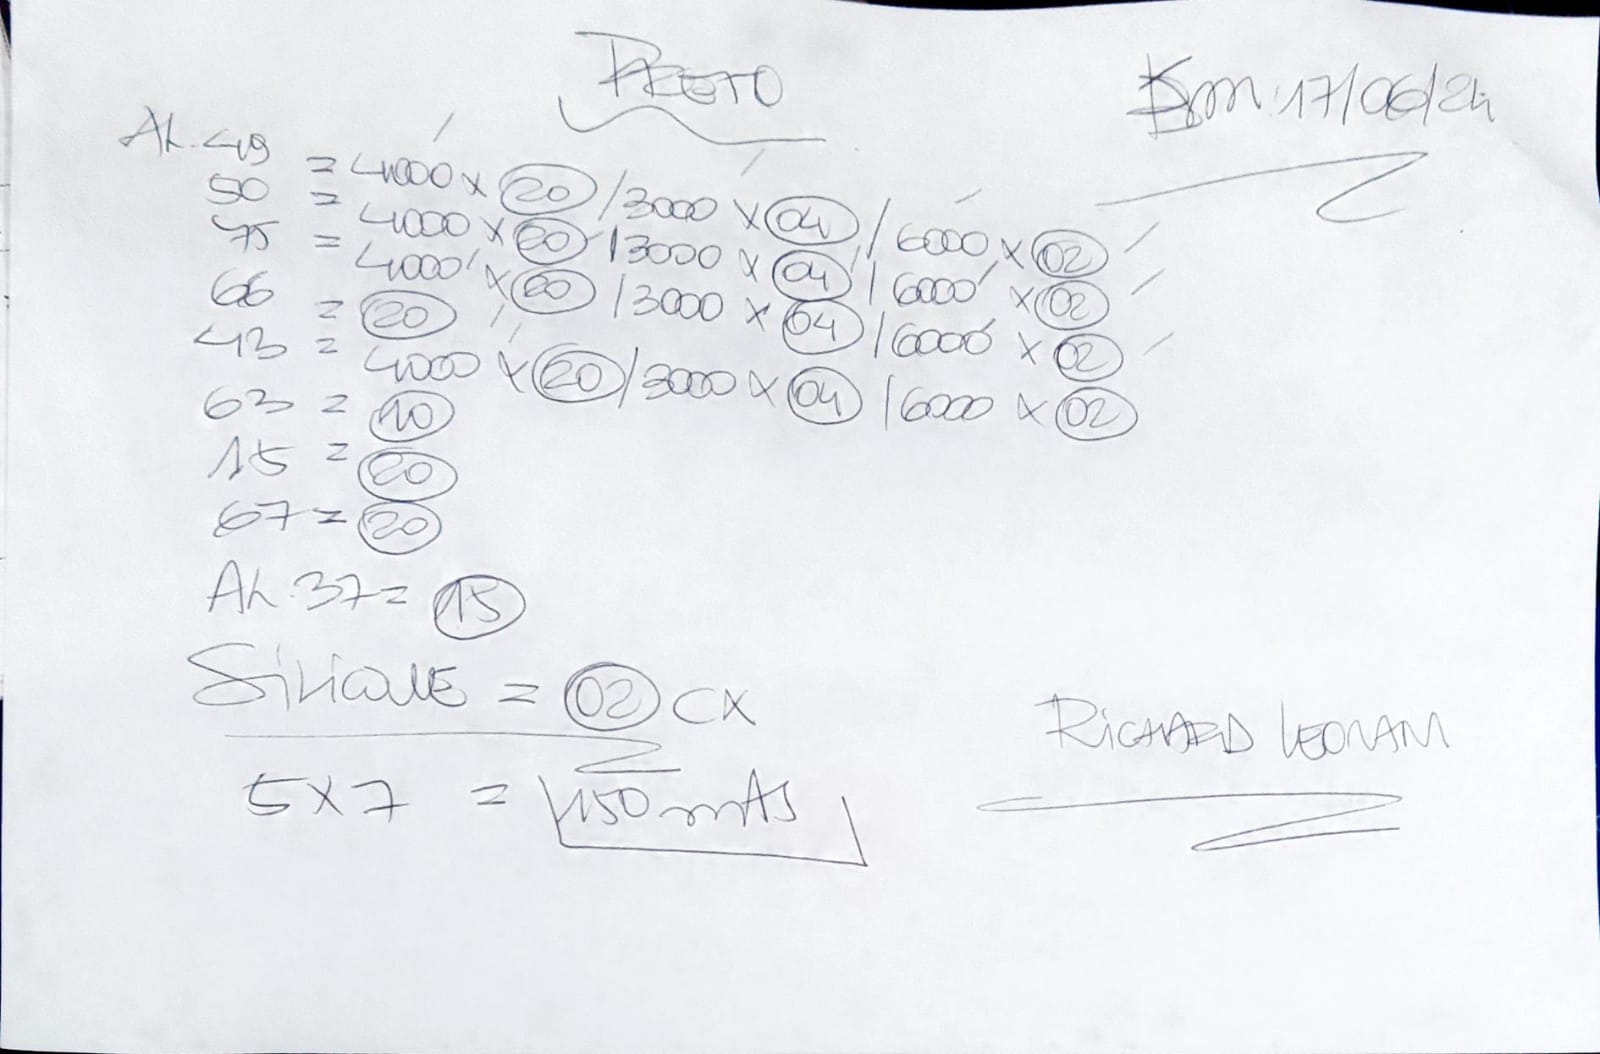 PRETO
Em: 17/06/24
AL. 49 = 4000 x 20 / 3000 x 04 / 6000 x 02
50 = 4000 x 20 / 3000 x 04 / 6000 x 02
75 = 4000 x 20 / 3000 x 04 / 6000 x 02
66 = 20
43 = 4000 x 20 / 3000 x 04 / 6000 x 02
63 = 10
15 = 20
67 = 20
AL. 37 = 15
SiLiCONE = 02 CX
5 x 7 = 150 mts
RiCHARD LEONAM